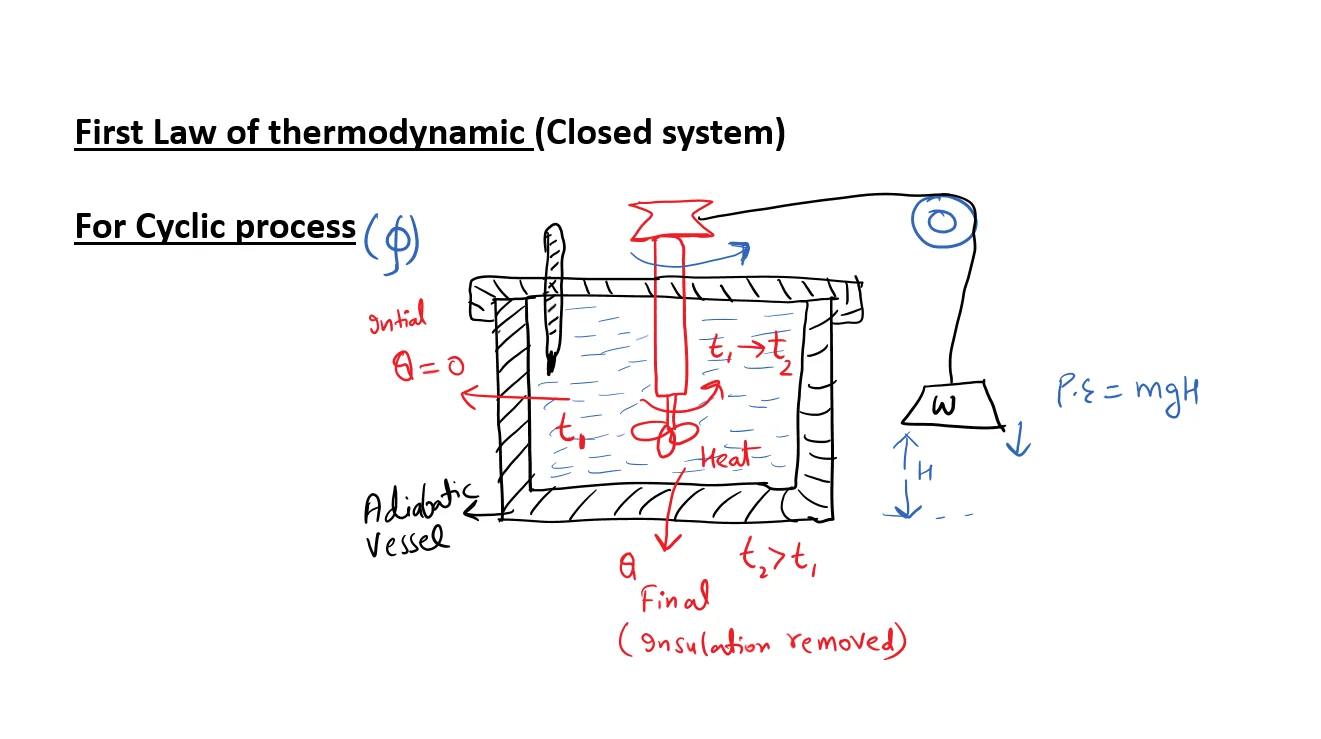 First Law of thermodynamic (Closed system)
For Cyclic process (∮)
Intial
Q = 0
t₁ → t₂
t₁
Heat
W
P.E = mgH
H
Adiabatic
Vessel
Q
t₂ > t₁
Final
(Insulation removed)